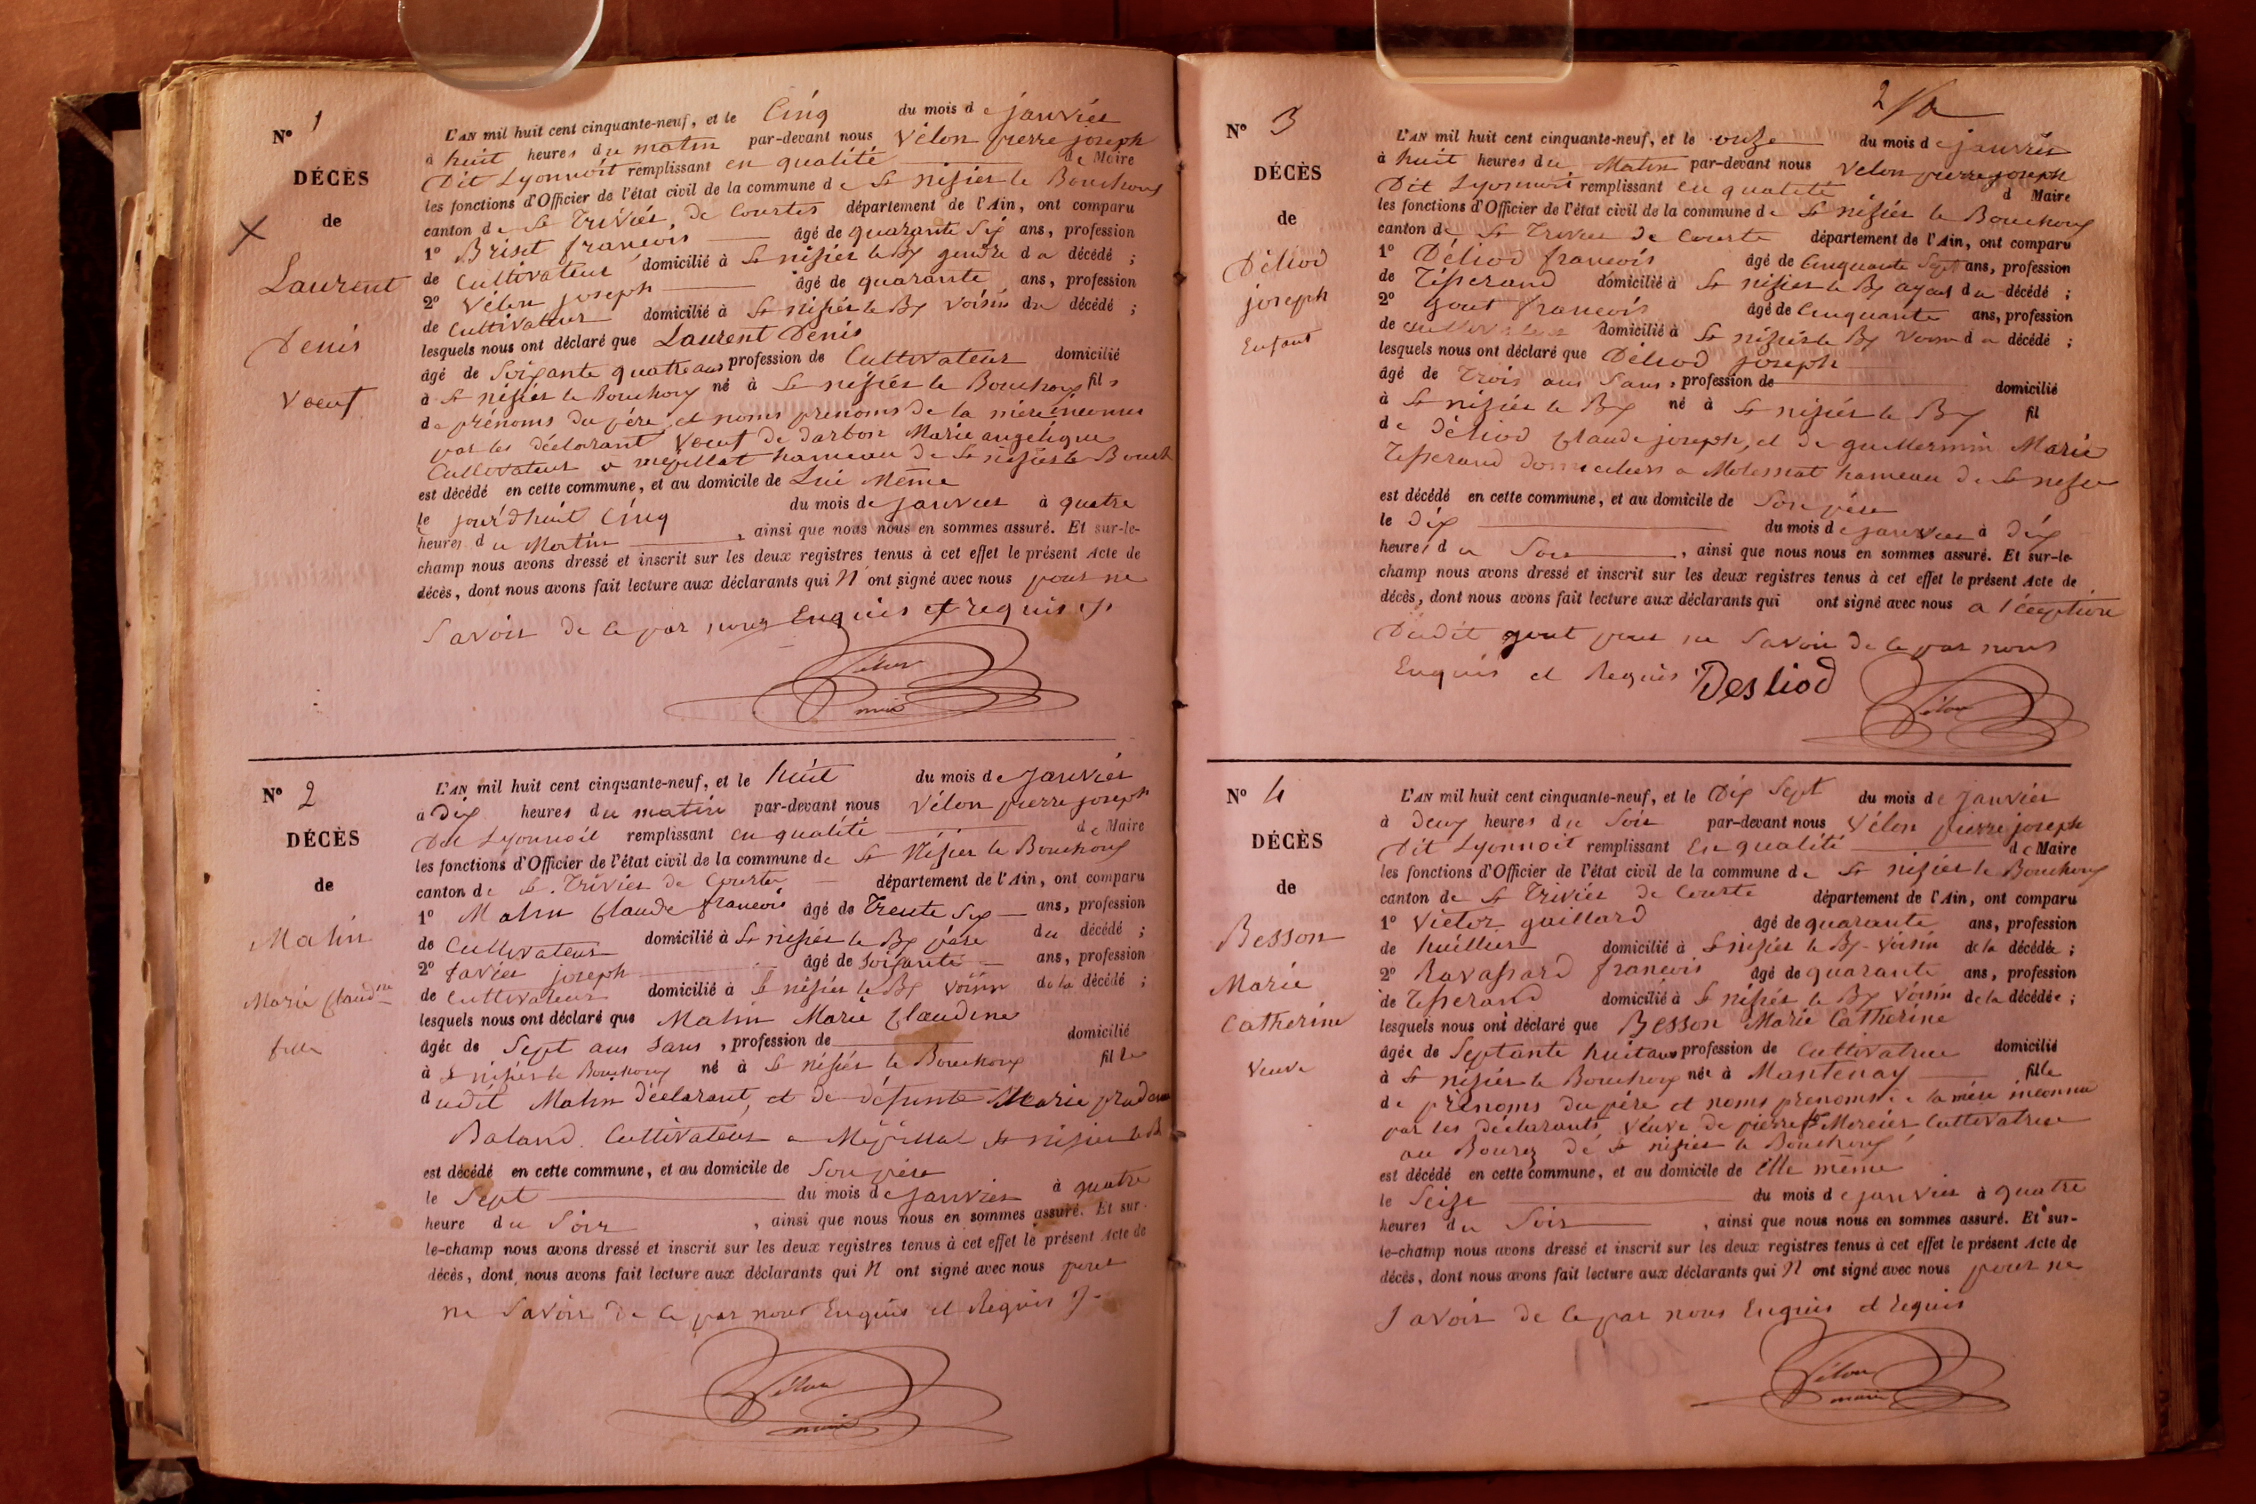 N° 1
DÉCÈS
de
Laurent
Denis
Voeuf
L'AN mil huit cent cinquante-neuf, et le Cinq du mois de janvier
à huit heures du matin par-devant nous Vélon pierre joseph
Dit Lyonnoit remplissant en qualité de Maire
les fonctions d'Officier de l'état civil de la commune de St nisier le Bouchoux
canton de St Triviér de Courtes département de l'Ain, ont comparu
1° Briset francois âgé de quarante Six ans, profession
de Cultivateur domicilié à St nisier le Bx gendre du décédé ;
2° Vélon joseph âgé de quarante ans, profession
de Cultivateur domicilié à St nisier le Bx voisin du décédé ;
lesquels nous ont déclaré que Laurent Denis
âgé de Soixante quatre ans profession de Cultivateur domicilié
à St nisier le Bouchoux né à St nisier le Bouchoux fils
de prénoms du père, et noms prenoms de la mère inconnus
par les déclarant Voeuf de darbon Marie angelique
Cultivateur a mépillat hameau de St nisier le Bouch
est décédé en cette commune, et au domicile de Lui Même
le jourd'huit Cinq du mois de janvier à quatre
heures du Matin , ainsi que nous nous en sommes assuré. Et sur-le-
champ nous avons dressé et inscrit sur les deux registres tenus à cet effet le présent Acte de
décès, dont nous avons fait lecture aux déclarants qui N' ont signé avec nous pour ne
Savoir de ce par nous Enquis et requis
Vélon
maire
N° 2
DÉCÈS
de
Malin
Marie Claudne
fille
L'AN mil huit cent cinquante-neuf, et le huit du mois de Janvier
à Dix heures du matin par-devant nous Vélon pierre joseph
Dit Lyonnoit remplissant en qualité de Maire
les fonctions d'Officier de l'état civil de la commune de St Nisier le Bouchoux
canton de St. Triviér de Courte département de l'Ain, ont comparu
1° Malin Claude francois âgé de Trente Six ans, profession
de Cultivateur domicilié à St nisier le Bx père du décédé ;
2° joseph âgé de Soixante ans, profession
de Cultivateur domicilié à St nisier le Bx voisin de la décédé ;
lesquels nous ont déclaré que Malin Marie Claudine
âgée de Sept ans Sans , profession de domicilié
à St nisier le Bouchoux né à St nisier le Bouchoux fille
dudit Malin déclarant, et de défunte Marie
Baland Cultivateur a Mépillat St nisier le B
est décédé en cette commune, et au domicile de Son père
le Sept du mois de Janvier à quatre
heure du Soir , ainsi que nous nous en sommes assuré. Et sur-
le-champ nous avons dressé et inscrit sur les deux registres tenus à cet effet le présent Acte de
décès, dont nous avons fait lecture aux déclarants qui N ont signé avec nous pour
ne Savoir de ce par nous Enquis et Requis
Vélon
maire
2
N° 3
DÉCÈS
de
Déliod
joseph
Enfant
L'AN mil huit cent cinquante-neuf, et le onze du mois de janvier
à huit heures du Matin par-devant nous Vélon pierre joseph
Dit Lyonnoit remplissant en qualité d Maire
les fonctions d'Officier de l'état civil de la commune de St nisier le Bouchoux
canton de St Trivier de Courte département de l'Ain, ont comparu
1° Déliod francois âgé de Cinquante Sept ans, profession
de Tisserand domicilié à St nisier le Bx ayeul du décédé ;
2° gout francois âgé de Cinquante ans, profession
de cultivateur domicilié à St nisier le Bx Voisin du décédé ;
lesquels nous ont déclaré que Déliod joseph
âgé de Trois ans Sans , profession de domicilié
à St nisier le Bx né à St nisier le Bx fil
de Déliod Claude joseph, et de guillermin Marie
Tisserand domiciliers a Molessiat hameau de St nisier
est décédé en cette commune, et au domicile de Son père
le Dix du mois de janvier à Dix
heures du Soir , ainsi que nous nous en sommes assuré. Et sur-le-
champ nous avons dressé et inscrit sur les deux registres tenus à cet effet le présent Acte de
décès, dont nous avons fait lecture aux déclarants qui ont signé avec nous a l'éception
Dudit gout pour ne Savoir de ce par nous
Enquis et Requis Desliod
Vélon
N° 4
DÉCÈS
de
Besson
Marie
Catherine
Veuve
L'AN mil huit cent cinquante-neuf, et le Dix Sept du mois de Janvier
à Deux heures du Soir par-devant nous Vélon pierre joseph
Dit Lyonnoit remplissant En qualité de Maire
les fonctions d'Officier de l'état civil de la commune de St nisier le Bouchoux
canton de St Triviér de Courte département de l'Ain, ont comparu
1° Victor gaillard âgé de quarante ans, profession
de huillier domicilié à St nisier le Bx voisin de la décédée ;
2° Ravassard francois âgé de quarante ans, profession
de Tisserand domicilié à St nisier le Bx Voisin de la décédée ;
lesquels nous ont déclaré que Besson Marie Catherine
âgée de Septante huit ans profession de Cultivatrice domicilié
à St nisier le Bouchoux née à Mantenay fille
de prénoms du père et noms prenoms de la mère inconnu
par les déclarants Veuve de pierre Mercier Cultivatrice
au Bourg de St nisier le Bouchoux
est décédé en cette commune, et au domicile de Elle même
le Seize du mois de janvier à quatre
heures du Soir , ainsi que nous nous en sommes assuré. Et sur-
le-champ nous avons dressé et inscrit sur les deux registres tenus à cet effet le présent Acte de
décès, dont nous avons fait lecture aux déclarants qui N ont signé avec nous pour ne
Savoir de ce par nous Enquis et requis
Vélon
maire